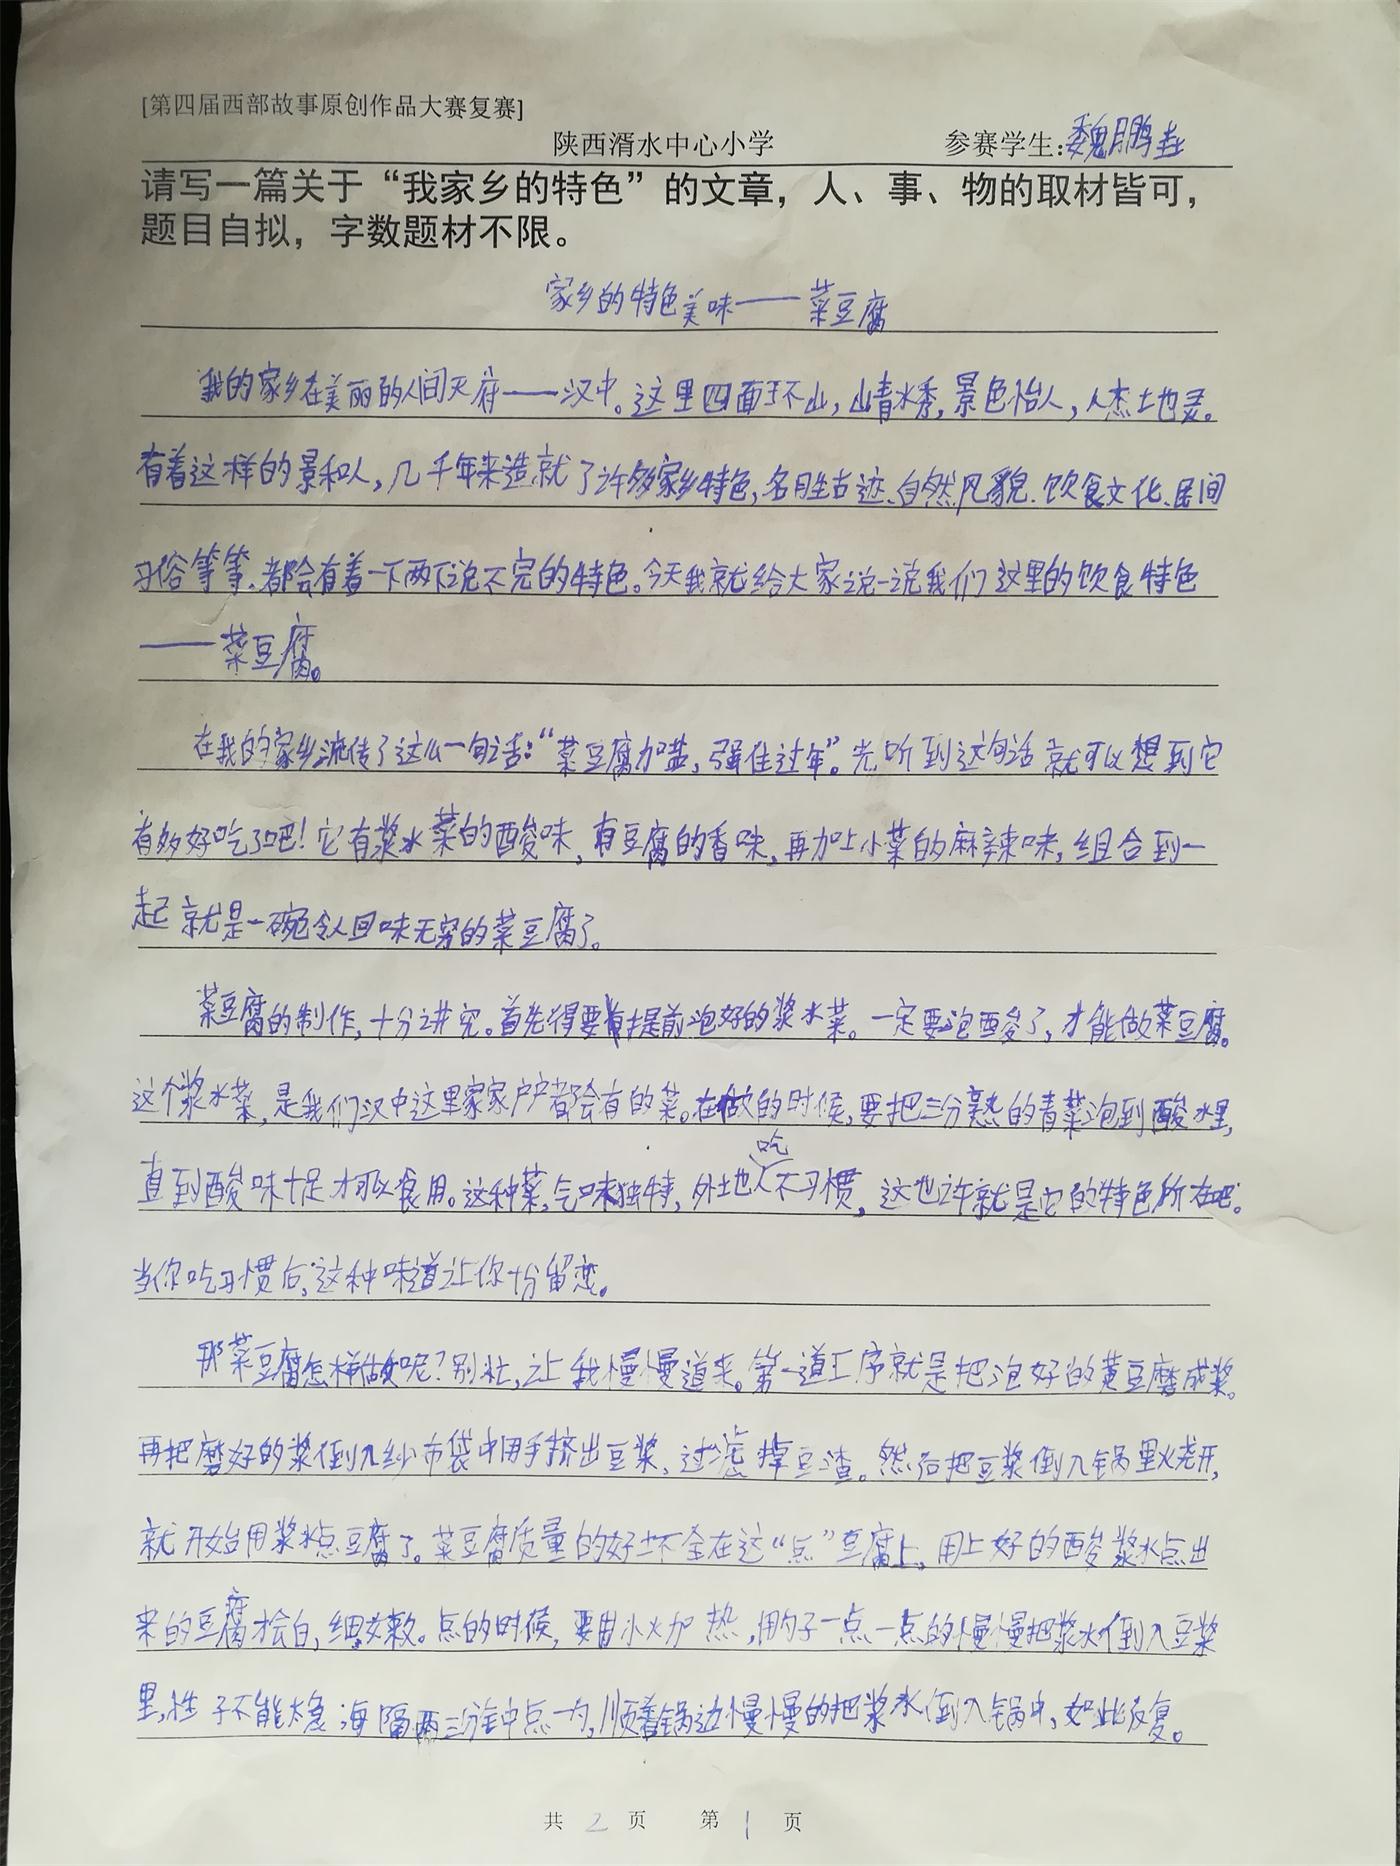 [第四届西部故事原创作品大赛复赛]
陕西渭水中心小学 参赛学生:魏鹏垚
请写一篇关于“我家乡的特色”的文章，人、事、物的取材皆可，
题目自拟，字数题材不限。
家乡的特色美味——菜豆腐
我的家乡在美丽的人间天府——汉中。这里四面环山，山青水秀，景色怡人，人杰土地灵。
有着这样的景和人，几千年来造就了许多家乡特色，名胜古迹、自然风貌、饮食文化、民间
习俗等等、都会有着一下两下说不完的特色。今天我就给大家说一说我们这里的饮食特色
——菜豆腐。
在我的家乡流传了这么一句话：“菜豆腐加盐，强住过年”。光听到这句话就可以想到它
有多好吃了吧！它有浆水菜的酸味，有豆腐的香味，再加上小菜的麻辣味，组合到一
起就是一碗令人回味无穷的菜豆腐了。
菜豆腐的制作，十分讲究。首先得要有提前泡好的浆水菜。一定要泡酸了，才能做菜豆腐。
这个浆水菜，是我们汉中这里家家户户都会有的菜。在做的时候，要把三分熟的青菜泡到酸水里，
直到酸味十足才可以食用。这种菜，气味独特，外地人吃不习惯，这也许就是它的特色所在吧。
当你吃习惯后，这种味道让你十分留恋。
那菜豆腐怎样做呢？别忙，让我慢慢道来。第一道工序就是把泡好的黄豆磨成浆。
再把磨好的浆倒入纱布袋中用手挤出豆浆，过滤掉豆渣。然后把豆浆倒入锅里火烧开，
就开始用浆水点豆腐了。菜豆腐质量的好坏全在这“点”豆腐上，用上好的酸浆水点出
来的豆腐才会白，细嫩。点的时候，要用小火加热，用勺子一点一点的慢慢把浆水倒入豆浆
里，性子不能太急 每隔两三分钟点一次，顺着锅边慢慢的把浆水倒入锅中，如此反复。
共 2 页 第 1 页